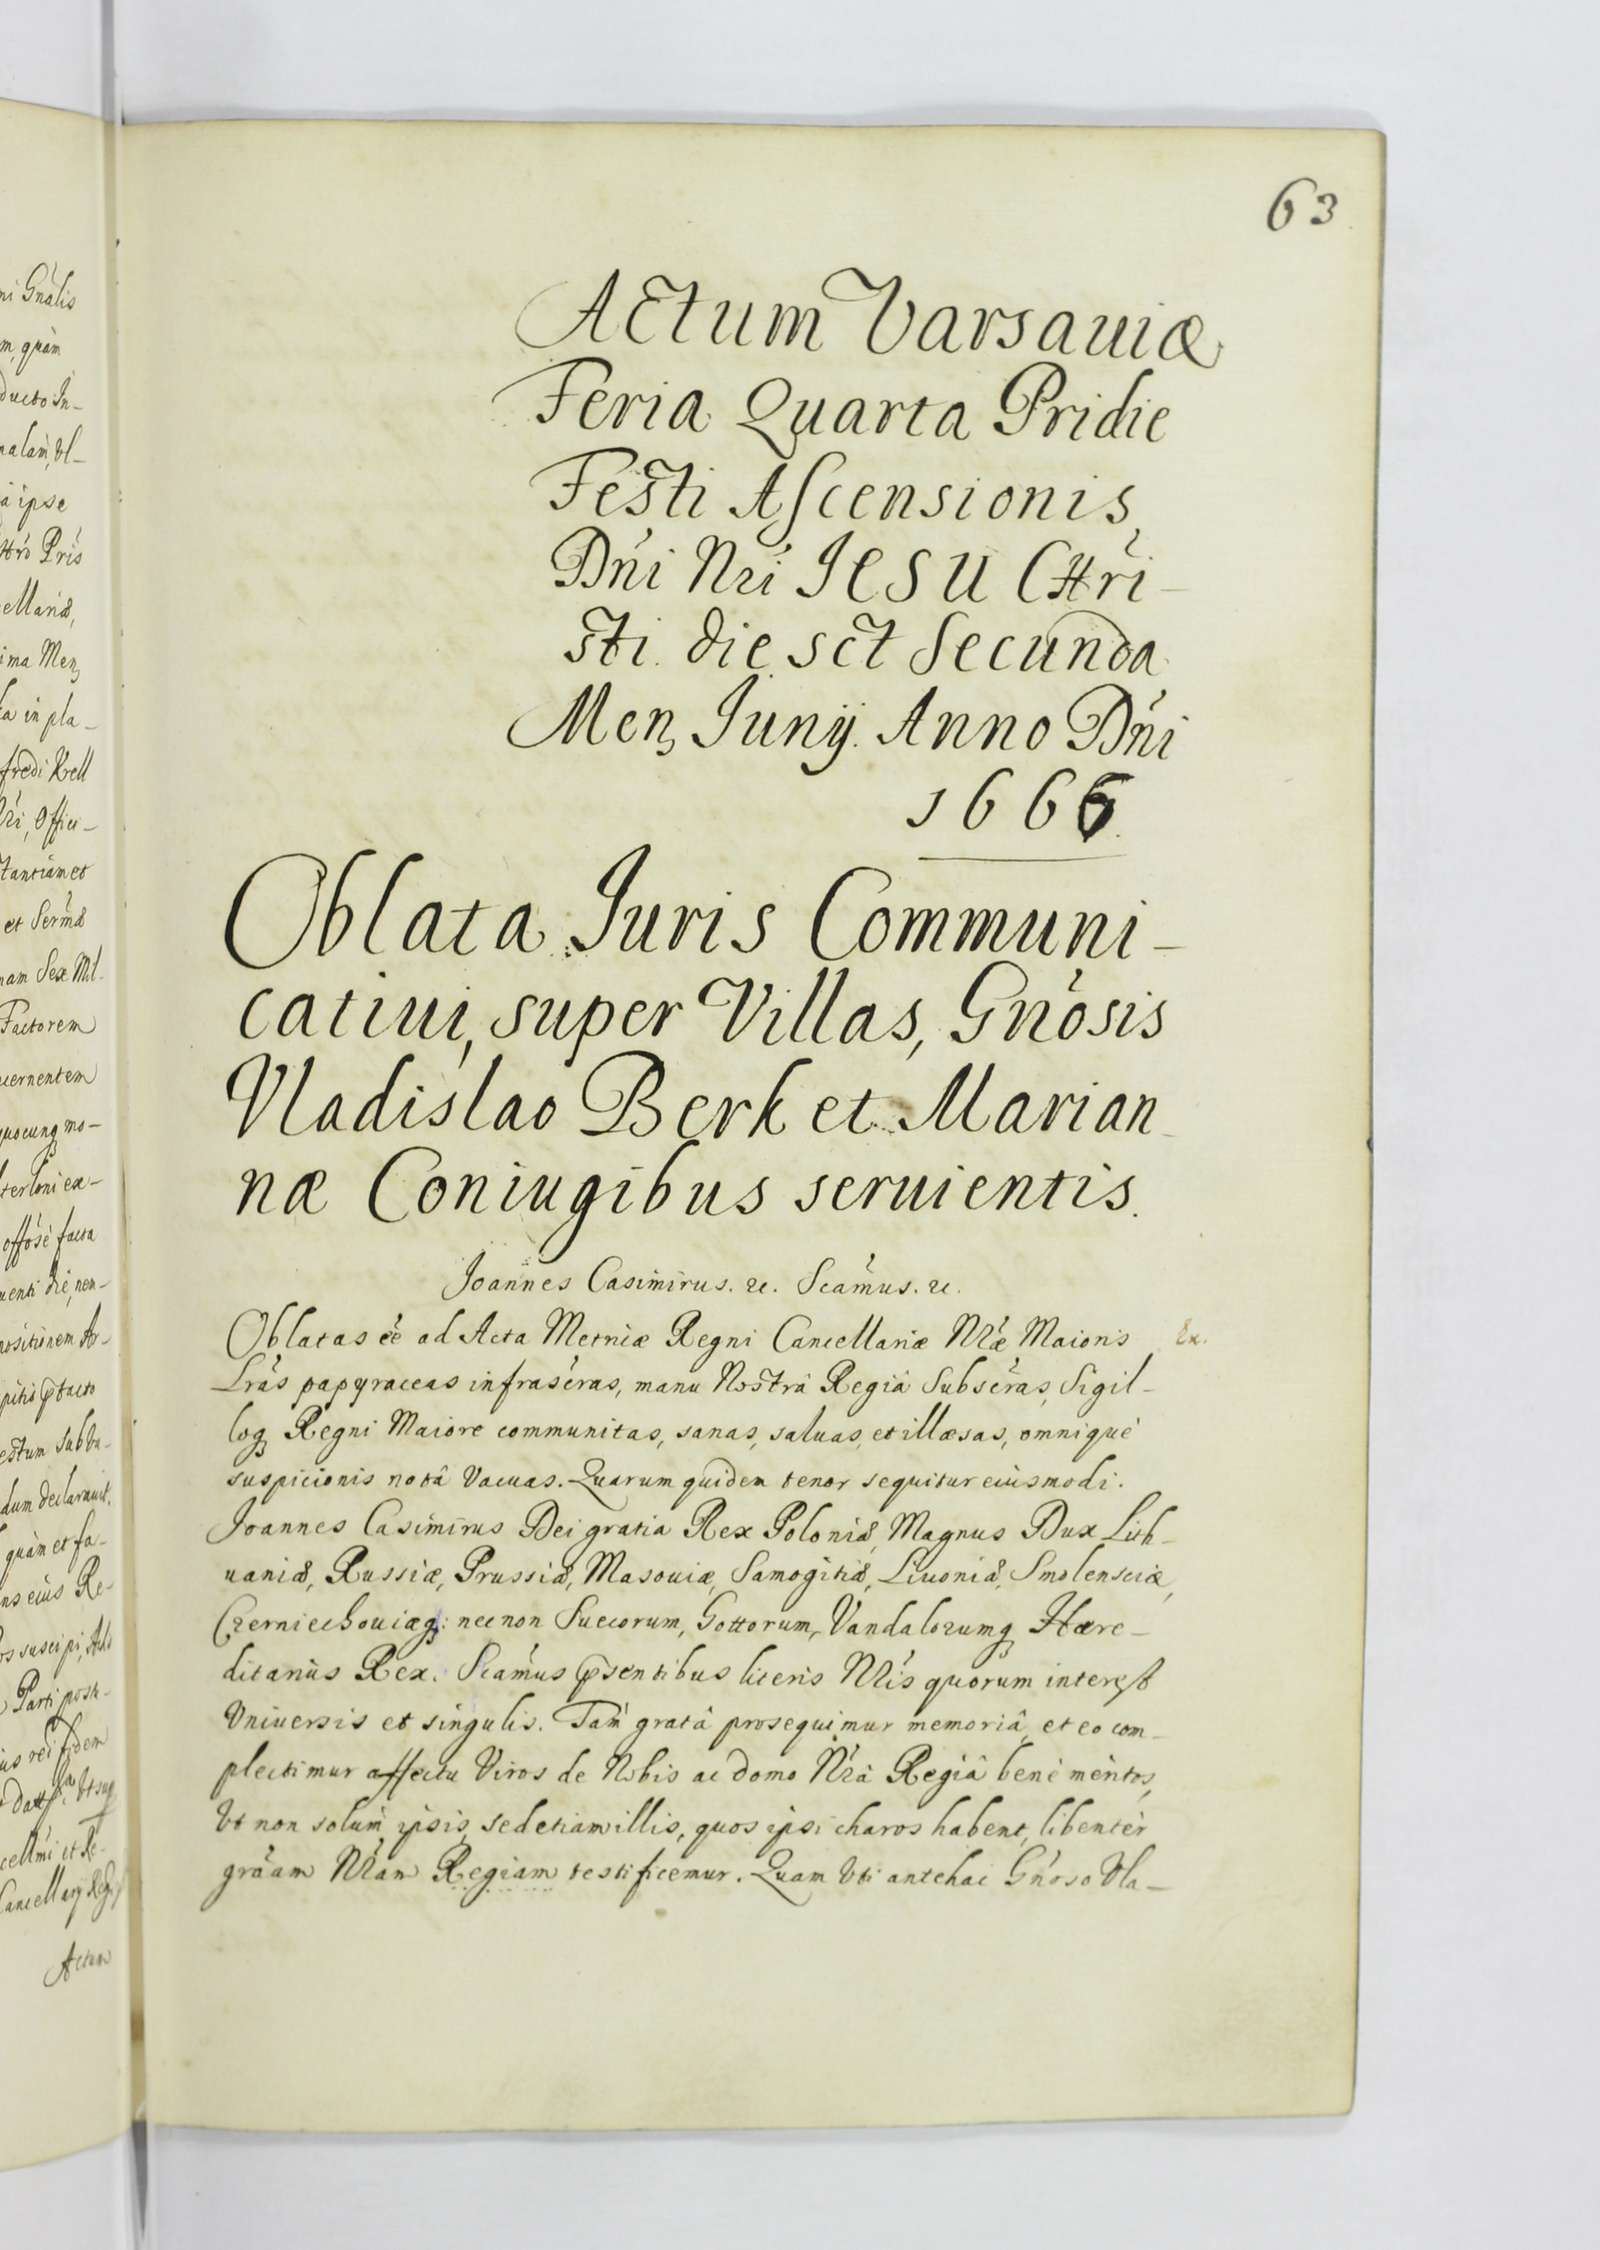 63
Actum Varsauiæ
Feria Quarta Pridie
Festi Ascensionis
Dńi Nri JESU CHri-
sti. die sct Secunda
Menz Junij. Anno Dńi
1666.
Oblata Juris Communi-
catiui, super Villas, Gnósis
Vladislao Berk et Marian-
næ Coniugibus seruientis.
Joannes Casimirus. etc. Scámus. etc.
Oblatas éé ad Acta Metricæ Regni Cancellariæ Nræ Maioris
Lrás papyraceas infrascras, manu Nostrâ Regiâ Subscras, Sigil-
loq Regni Maiore communitas, sanas, saluas, et illæsas, omnique
suspicionis notâ vacuas. Quarum quidem tenor sequitur eiusmodi.
Joannes Casimirus Dei gratia Rex Poloniæ, Magnus Dux Lith-
uaniæ, Russiæ, Prussiæ, Masouiæ, Samogitiæ, Liuoniæ, Smolensciæ,
Czerniechouiæq: necnon Suecorum, Gottorum, Vandalorumq Hære-
ditarius Rex. Scámus pśentibus literis Nrís quorum interest
Vniuersis et singulis. Tam gratâ prosequimur memoriâ, et eo com-
plectimur affectu Viros de Nobis ac domo Nrâ Regiâ benè meritos,
Vt non solum ipsis, sed etiam illis, quos ipsi charos habent, libenter
gráam Nram Regiam testificemur. Quam Vti antehac Gnóso Vla-
ni Gnalis
m, quàm
ducto In-
à ipse
Pris
ellariæ,
ima Menz
ta in pla-
fredi Krell
Nri, Offici-
tantiam et
et Sermæ
nam Sex Mil-
Factorem
cernentem
quocunq mo-
facta
uenti die, non-
estum
dum declarauit.
quàm et fa-
ns eius Re-
os suscipi,
Parti
ius rei fidem
et Re-
Cancellarij Regni
Actum